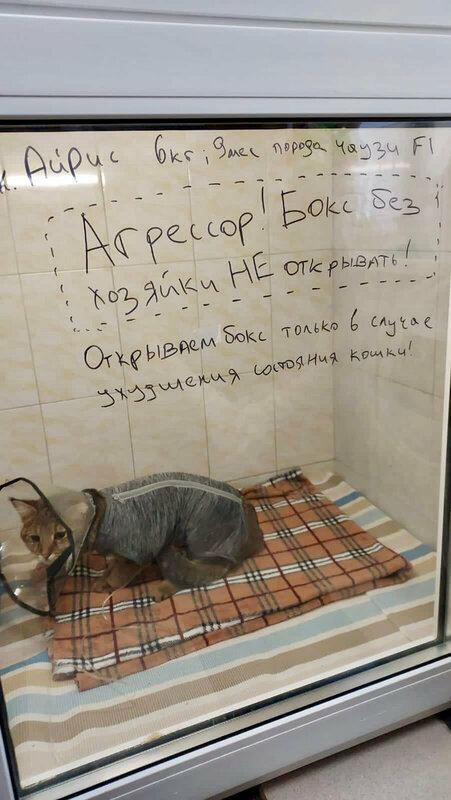 Айрис 6кг, 9мес порода чаузи F1
Агрессор! Бокс без
хозяйки НЕ открывать!
Открываем бокс только в случае
ухудшения состояния кошки!